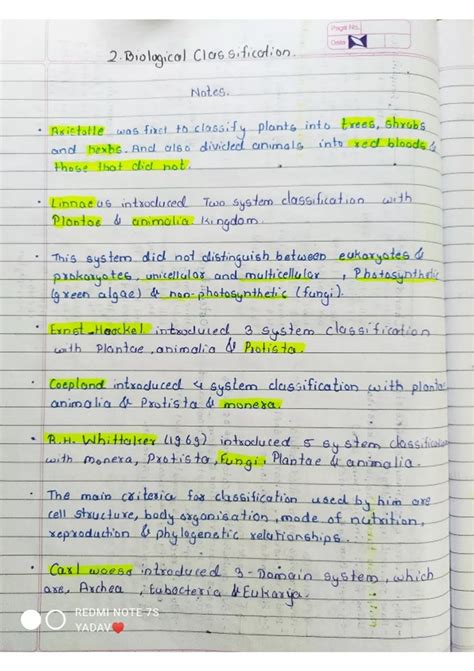 Page No.
Date
2. Biological Classification.
Notes.
• Aristotle was first to classify plants into trees, shrubs
and herbs. And also divided animals into red bloods &
those that did not.
• Linnaeus introduced Two system classification with
Plantae & animalia kingdom.
• This system did not distinguish between eukaryotes &
prokaryotes, unicellular and multicellular , Photosynthetic
(green algae) & non-photosynthetic (fungi).
• Ernst Haeckel introduced 3 system classification
with Plantae, animalia & Protista.
• Coepland introduced 4 system classification with planta
animalia & Protista & monera.
• R.H. Whittaker (1969) introduced 5 system classification
with monera, Protista, Fungi, Plantae & animalia.
• The main criteria for classification used by him are
cell structure, body organisation, mode of nutrition,
reproduction & phylogenetic relationships.
• Carl woese introduced 3-Domain system, which
are, Archea , Eubacteria & Eukarya.
REDMI NOTE 7S
YADAV❤️